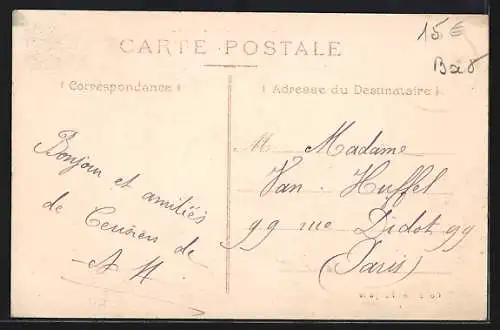 15 €
CARTE POSTALE
Correspondance
Adresse du Destinataire
Bonjour et amitiés
de de
A H
M Madame
Van-Huffel
99 rue Didot 99
(Paris)